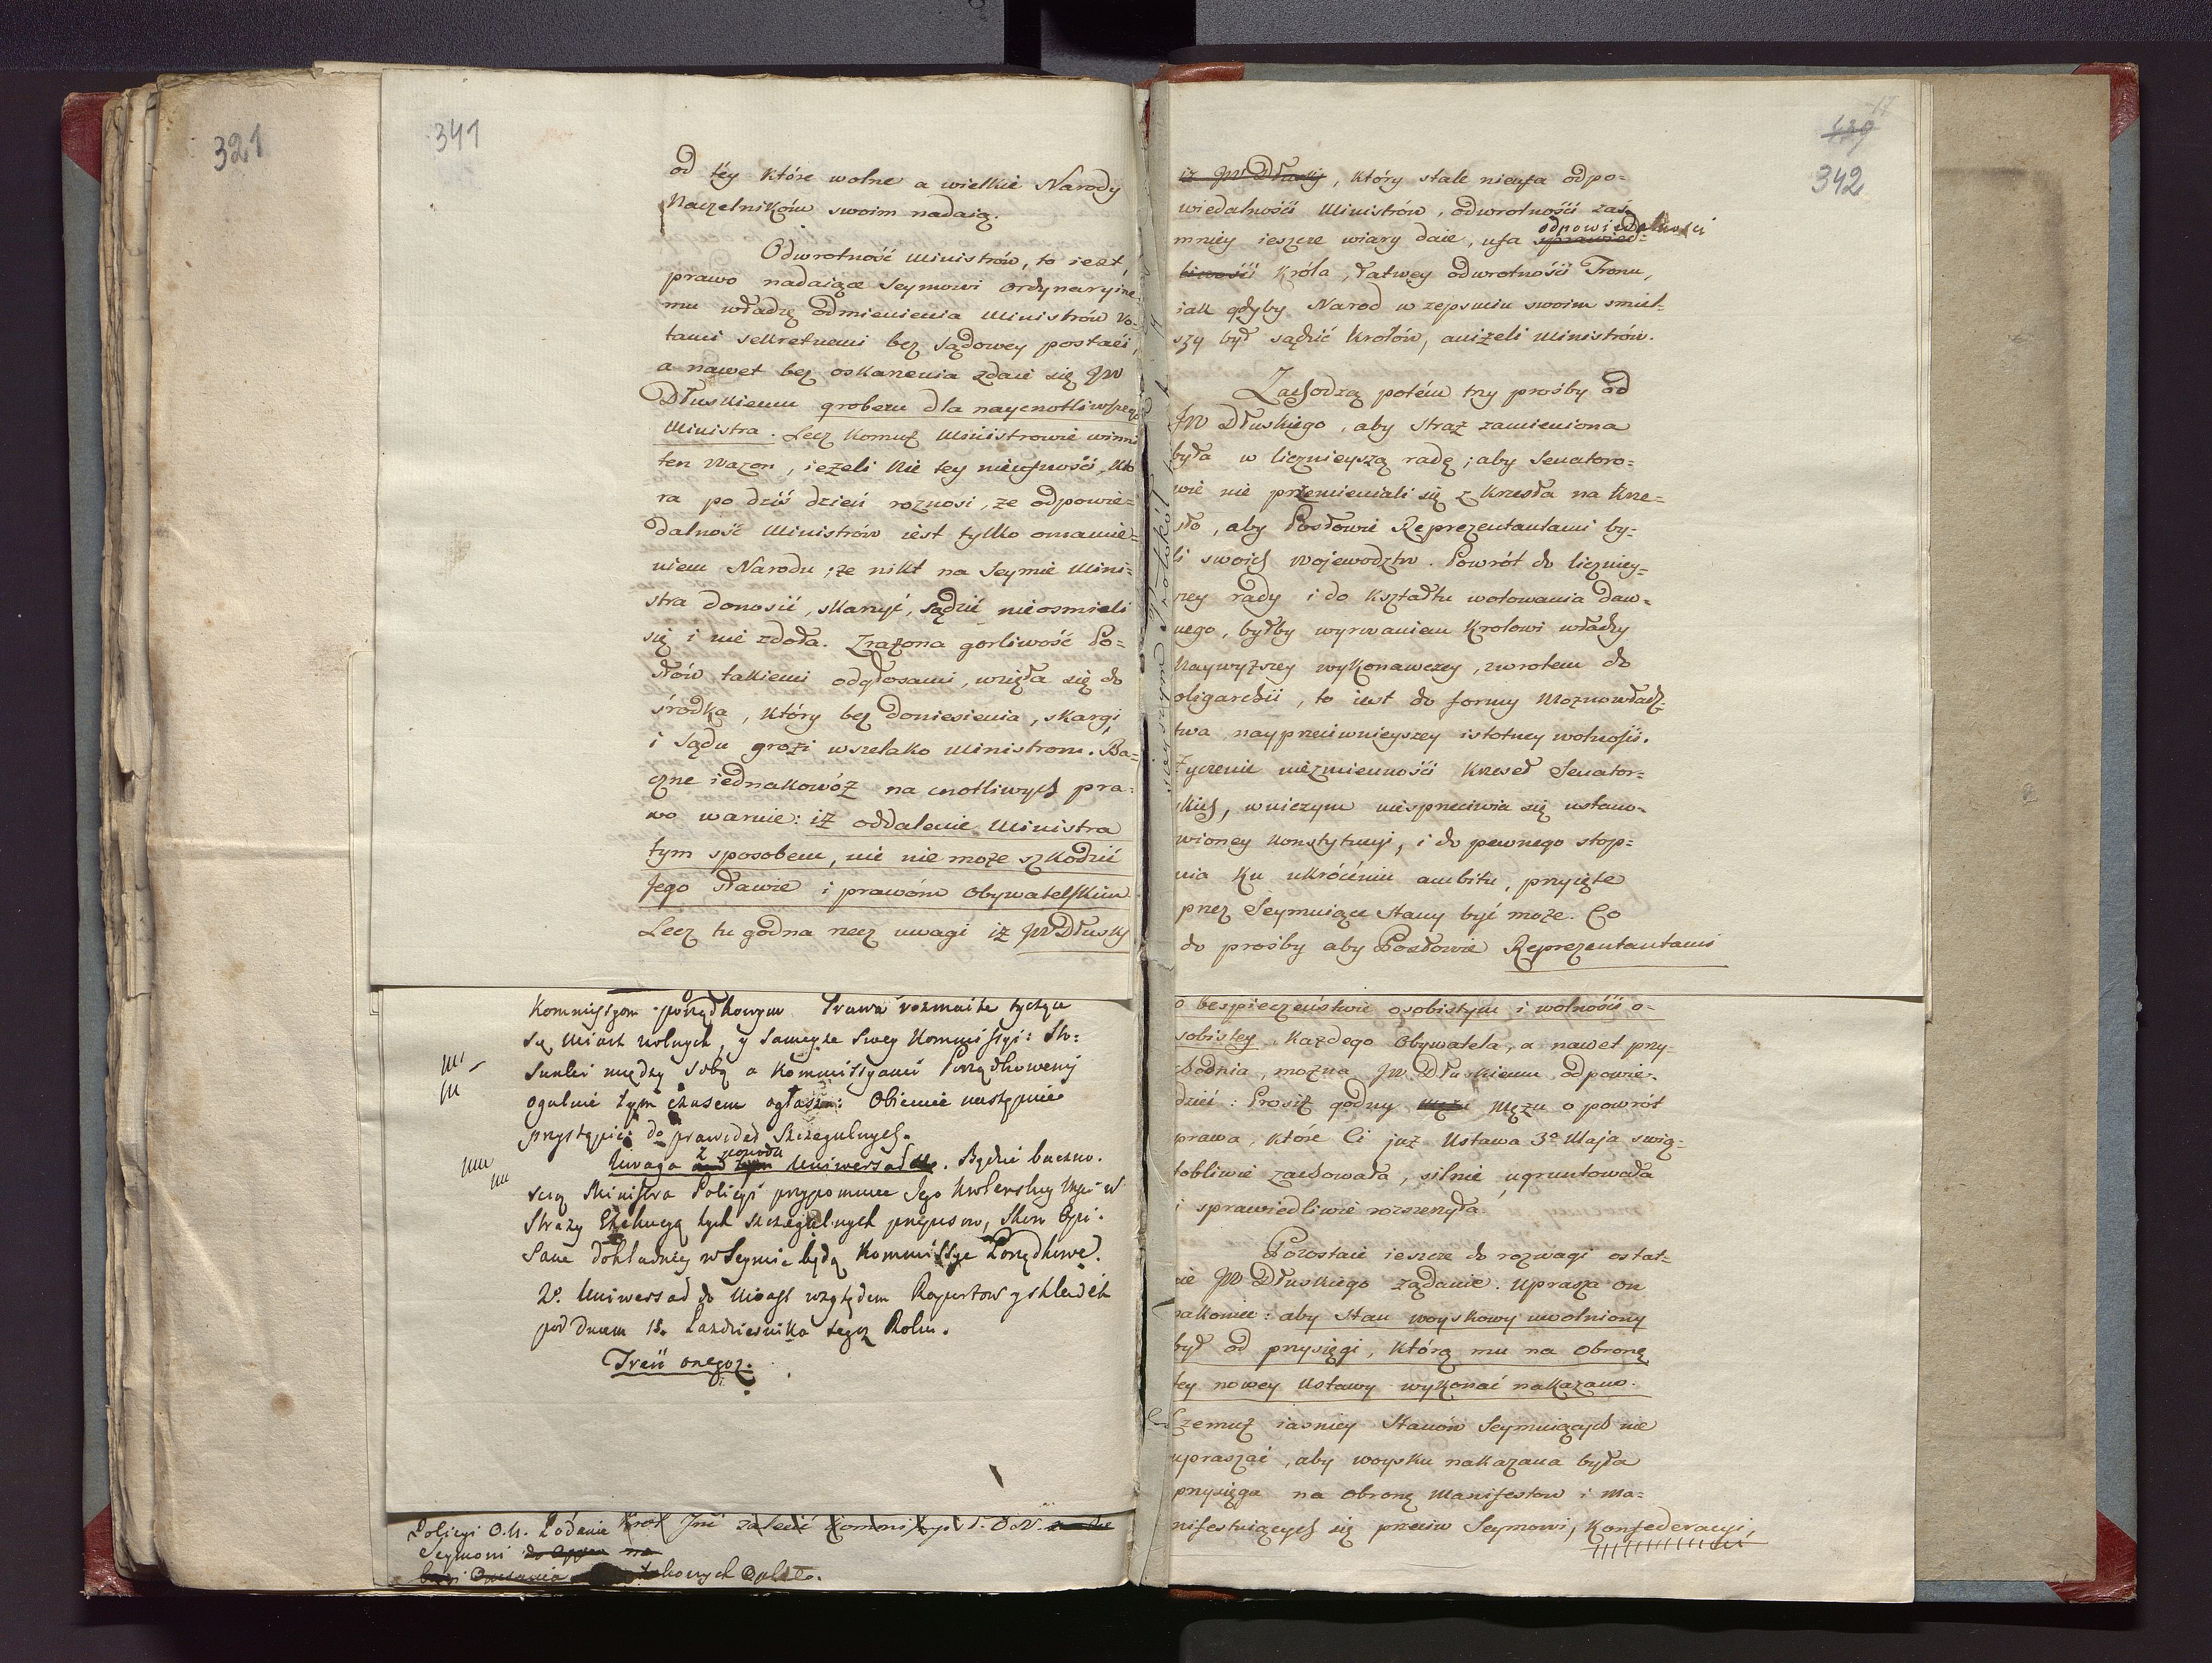 321
341
od téy które wolne a wielkie Narody
Naczelników swoim nadaią.
Odwrotność Ministrów, to iest,
prawo nadaiące Seymowi Ordynaryine-
mu władzę odmienienia Ministrów vo-
tami sekretnemi bez sądowey postaći,
a nawet bez oskarzenia zdaie się JW
Dłuskiemu grobem dla naycnotliwszego
Ministra. Lecz komuż Ministrowie winni
ten wazon, ieżeli nie tey nieufnośći, któ
ra po dziś dzień roznosi, że odpowie=
dalność Ministrów iest tylko omamie=
niem Narodu; że nikt na Seymie Mini=
stra donosić, skarzyć, sądzić nieosmieli
się i nie zdoła. Zrażona gorliwość Po=
słów takiemi odgłosami, wzięła się do
środka, który bez doniesienia, skargi,
i sądu grozi wszelako Ministrom. Ba=
czne iednakowóż na cnotliwych pra=
wo waruie: iż oddalenie Ministra
tym sposobem, nic nie może szkodzić
Jego sławie i prawóm Obywatelskim
Lecz tu godna rzecz uwagi iż JW Dłusky
Kommissyom porządkowym Prawa rozmaite tyczące
się Miast wolnych, y samejże swey Kommissyi: Sto=
sunki między sobą a Kommissyami Porządkowemi
ogulnie tym czasem ogłasza: Obiecuie następnie
przystąpić do prawideł szczegulnych.
Uwaga z powodu Uniwersału. Będzie baczno-
scią Ministra Policyi przypomnieć Jego Krolewskiey Mci w
Straży Exekucyą tych szczegulnych przepisow, skoro Opi-
sane dokładniey w Seymie będą Kommissye Porządkowe.
2o. Uniwersał do Miast względem Raportow y składek
pod dniem 15. Pazdziernika tegoż Roku.
Treść onegoż.
Policyi O.N. Podanie Krol Jmć zalecić Kommissyi P. O.N.
Seymowi
139
342
iż JW Dłusky, który stale nieufa odpo=
wiedalnośći Ministrów, odwrotnośći zaś
odpowiedalności
mniey ieszcze wiary daie, ufa sprawied=
liwośći Króla, łatwey odwrotnośći Tronu,
iak gdyby Narod w zepsuciu swoim smiel=
szy był sądzić Krolów, aniżeli Ministrów.
Zachodzą potém trzy prośby od
JW Dłuskiego, aby Straż zamieniona
była w licznieyszą radę; aby Senatoro=
wie nie przemieniali się z krzesła na krze=
sło, aby Posłowie Reprezentantami by=
li swoich Wojewodztw. Powrót do liczniey=
szey rady i do kształtu wotowania daw=
nego, byłby wyrwaniem Krolowi władzy
naywyższey wykonawczey, zwrotem do
oligarchii, to iest do formy możnowładz=
twa nayprzeciwnieyszey istotney wolnośći.
Życzenie niezmiennośći krzeseł Senator=
skich, wniczym niesprzeciwia się ustano=
wioney Konstytucyi, i do pewnego stop=
nia ku ukróćeniu ambitu, przyięte
przez Seymuiące Stany być może. Co
do prośby aby Posłowie Reprezentantami
o bespieczeństwie osobistym i wolnośći o=
sobistey każdego Obywatela, a nawet przy-
chodnia, można JW. Dłuskiemu odpowie-
dzieć: Prosisz godny Mężu o powrót
prawa, które Ci już Ustawa 3o Maja swią-
tobliwie zachowała, silnie ugruntowała
i sprawiedliwie rozszerzyła.
Pozostaie ieszcze do rozwagi ostat=
nie JW Dłuskiego żądanie. Uprasza on
nakoniec: aby Stan woyskowy uwolniony
był od przysięgi, którą mu na obronę
tey nowey Ustawy wykonać nakazano.
Czemuż iasniey Stanów Seymuiących nie
upraszać, aby woysku nakazana była
przysięga na obronę Manifestow i ma=
nifestuiących się przeciw Seymowi, Konfederacyi,